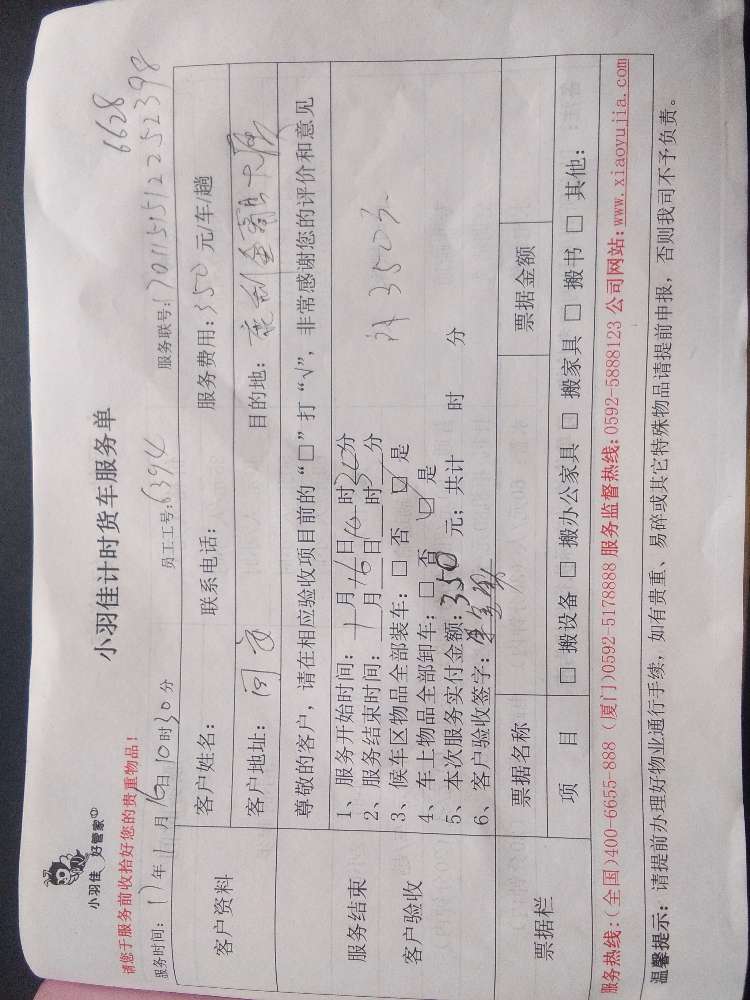 小羽佳 好管家
小羽佳计时货车服务单
6628
请您于服务前收拾好您的贵重物品！
服务时间：17年1月16日10时30分 员工工号：6394 服务联号：1701151512252398
客户资料
客户姓名： 联系电话： 服务费用：350元/车/趟
客户地址： 目的地：
尊敬的客户，请在相应验收项目前的“□”打“√”，非常感谢您的评价和意见
服务结束
客户验收
1、服务开始时间：1月16日10时30分
2、服务结束时间：月16日时分
3、候车区物品全部装车：□ 否 ☑ 是
4、车上物品全部卸车：□ 否 ☑ 是
5、本次服务实付金额：350元；共计 时 分
6、客户验收签字：
票据栏
票据名称 票据金额
项 目 □ 搬设备 □ 搬办公家具 □ 搬家具 □ 搬书 □ 其他：
服务热线：(全国)400-6655-888 (厦门)0592-5178888 服务监督热线：0592-5888123 公司网站：www.xiaoyujia.com
温馨提示：请提前办理好物业通行手续，如有贵重、易碎或其它特殊物品请提前申报，否则我司不予负责。